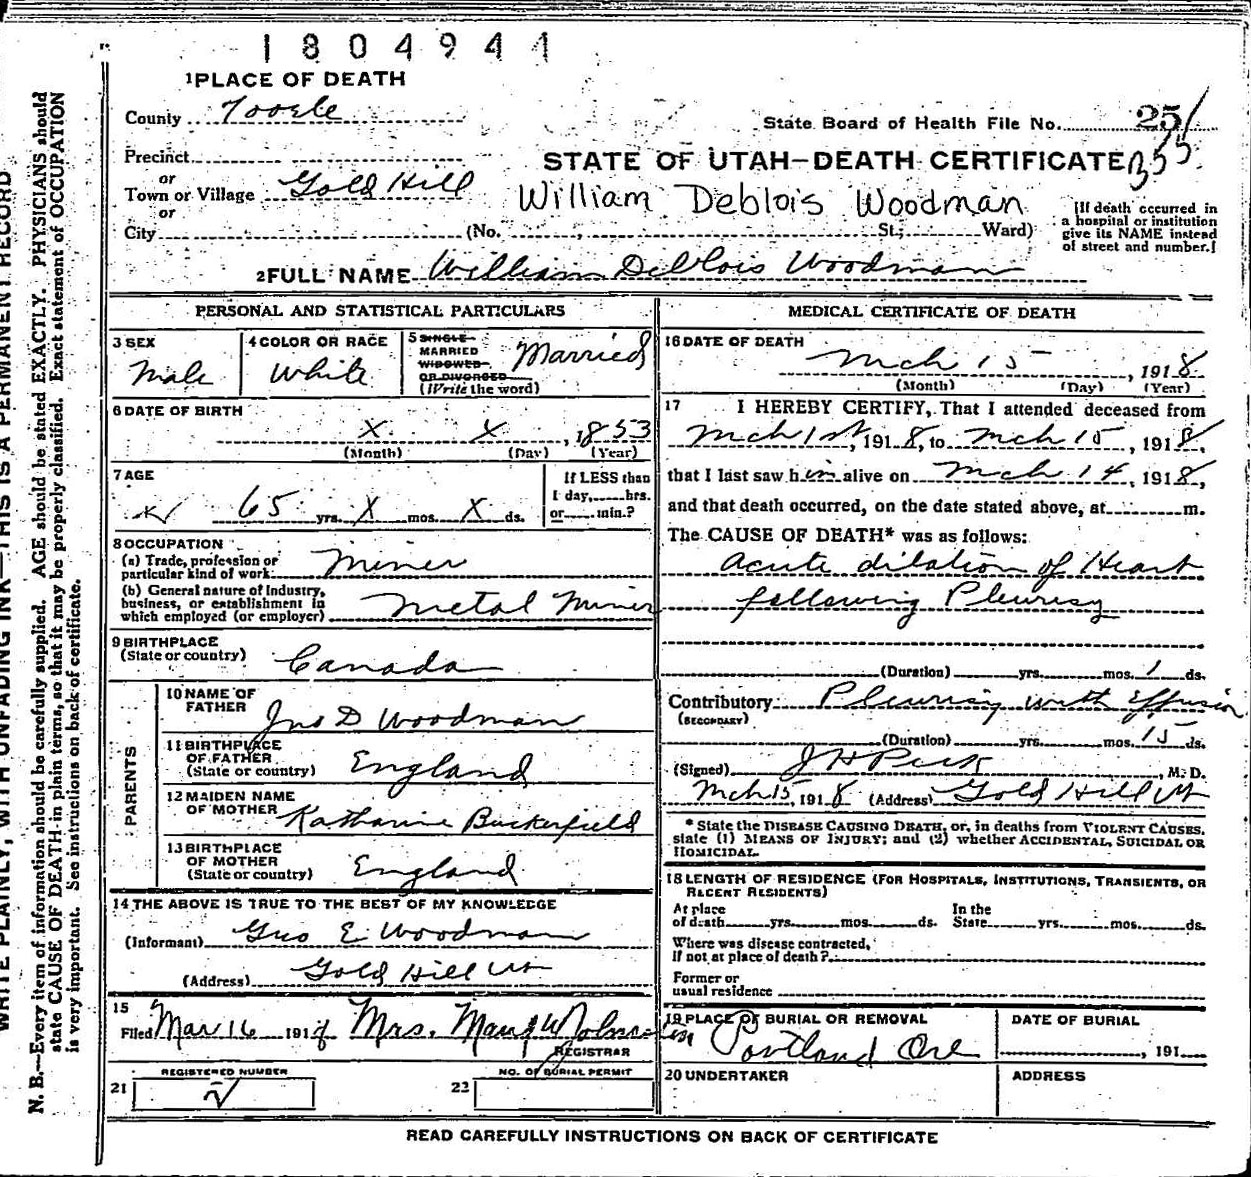 1804941
1 PLACE OF DEATH
County Tooele
State Board of Health File No. 251
Precinct
or
Town or Village Gold Hill
STATE OF UTAH—DEATH CERTIFICATE
William Deblois Woodman
or
City (No. , St; Ward)
[If death occurred in
a hospital or institution
give its NAME instead
of street and number.]
2 FULL NAME William Deblois Woodman
PERSONAL AND STATISTICAL PARTICULARS
3 SEX
Male
4 COLOR OR RACE
White
5 SINGLE
MARRIED
WIDOWED
OR DIVORCED
(Write the word)
Married
6 DATE OF BIRTH
X X , 1853
(Month) (Day) (Year)
7 AGE
65 yrs. X mos. X ds.
If LESS than
1 day, hrs.
or min.?
8 OCCUPATION
(a) Trade, profession or
particular kind of work Miner
(b) General nature of industry,
business, or establishment in
which employed (or employer) Metal Miner
9 BIRTHPLACE
(State or country) Canada
PARENTS
10 NAME OF
FATHER Jno D Woodman
11 BIRTHPLACE
OF FATHER
(State or country) England
12 MAIDEN NAME
OF MOTHER Katharine Buckerfield
13 BIRTHPLACE
OF MOTHER
(State or country) England
14 THE ABOVE IS TRUE TO THE BEST OF MY KNOWLEDGE
(Informant) E Woodman
(Address) Gold Hill Ut
15
Filed Mar 16 191 Mrs.
REGISTRAR
REGISTERED NUMBER
21
NO. OF BURIAL PERMIT
22
MEDICAL CERTIFICATE OF DEATH
16 DATE OF DEATH
Mch 15 , 1918
(Month) (Day) (Year)
17 I HEREBY CERTIFY, That I attended deceased from
Mch 1st, 1918, to Mch 15, 1918,
that I last saw him alive on Mch 14, 1918,
and that death occurred, on the date stated above, at m.
The CAUSE OF DEATH* was as follows:
Acute dilation of Heart
following Pleurisy
(Duration) yrs. mos. 1 ds.
Contributory Pleurisy with Effusion
(SECONDARY)
(Duration) yrs. mos. 15 ds.
(Signed) J H Peck , M. D.
Mch 15, 1918 (Address) Gold Hill Ut
* State the DISEASE CAUSING DEATH, or, in deaths from VIOLENT CAUSES,
state (1) MEANS OF INJURY; and (2) whether ACCIDENTAL, SUICIDAL OR
HOMICIDAL.
18 LENGTH OF RESIDENCE (FOR HOSPITALS, INSTITUTIONS, TRANSIENTS, OR
RECENT RESIDENTS)
At place
of death yrs. mos. ds.
In the
State yrs. mos. ds.
Where was disease contracted,
If not at place of death?
Former or
usual residence
19 PLACE OF BURIAL OR REMOVAL
Portland Ore
DATE OF BURIAL
, 191
20 UNDERTAKER
ADDRESS
READ CAREFULLY INSTRUCTIONS ON BACK OF CERTIFICATE
WRITE PLAINLY, WITH UNFADING INK—THIS IS A PERMANENT RECORD
N. B.—Every item of information should be carefully supplied. AGE should be stated EXACTLY. PHYSICIANS should
state CAUSE OF DEATH in plain terms, so that it may be properly classified. Exact statement of OCCUPATION
is very important. See instructions on back of certificate.